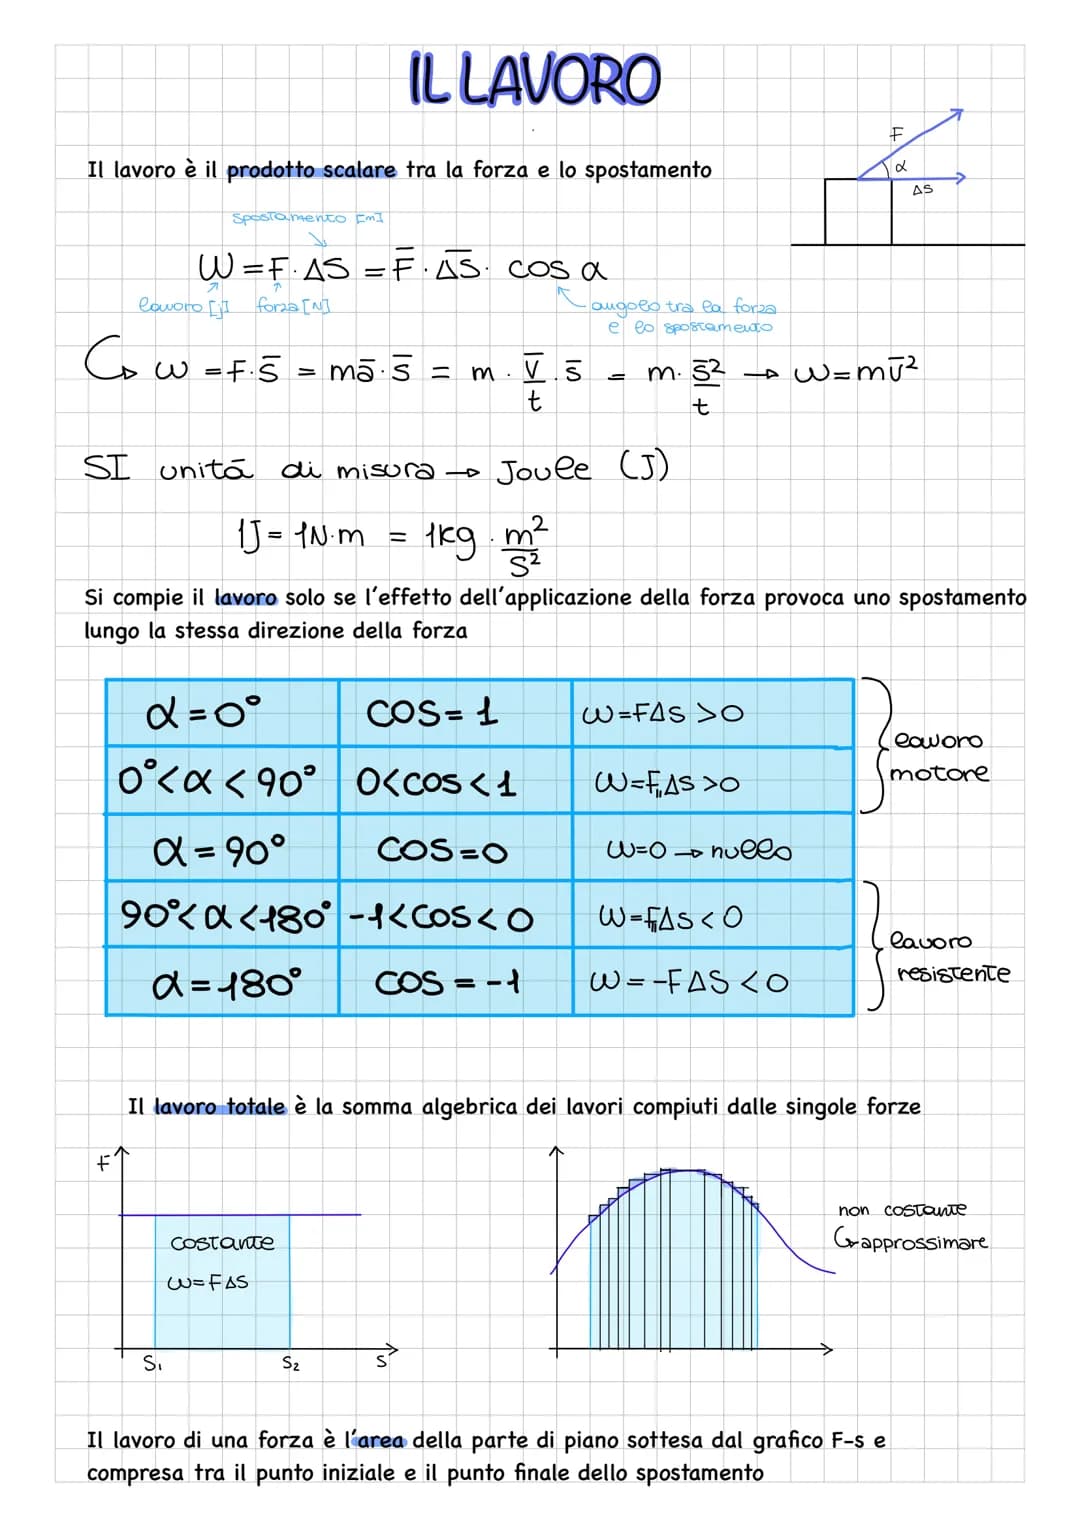 IL LAVORO
Il lavoro è il prodotto scalare tra la forza e lo spostamento
F
α
ΔS
spostamento [m]
W = F · ΔS = F̄ · Δ̄S̄ · cos α
lavoro [j] forza [N]
angolo tra la forza
e lo spostamento
↳ W = F · s̄ = mā · s̄ = m · v̄/t · s̄ = m · s̄²/t → W = mv̄²
SI unitā di misura → Joule (J)
1J = 1N·m = 1kg · m²/s²
Si compie il lavoro solo se l'effetto dell'applicazione della forza provoca uno spostamento
lungo la stessa direzione della forza
α = 0° cos = 1 W = FΔS > 0
0° < α < 90° 0 < cos < 1 W = F∥ΔS > 0
lavoro
motore
α = 90° cos = 0 W = 0 → nullo
90° < α < 180° -1 < cos < 0 W = F∥ΔS < 0
α = 180° cos = -1 W = -FΔS < 0
lavoro
resistente
Il lavoro totale è la somma algebrica dei lavori compiuti dalle singole forze
F
costante
W = FΔS
S₁ S₂ S
non costante
↳ approssimare
Il lavoro di una forza è l'area della parte di piano sottesa dal grafico F-s e
compresa tra il punto iniziale e il punto finale dello spostamento